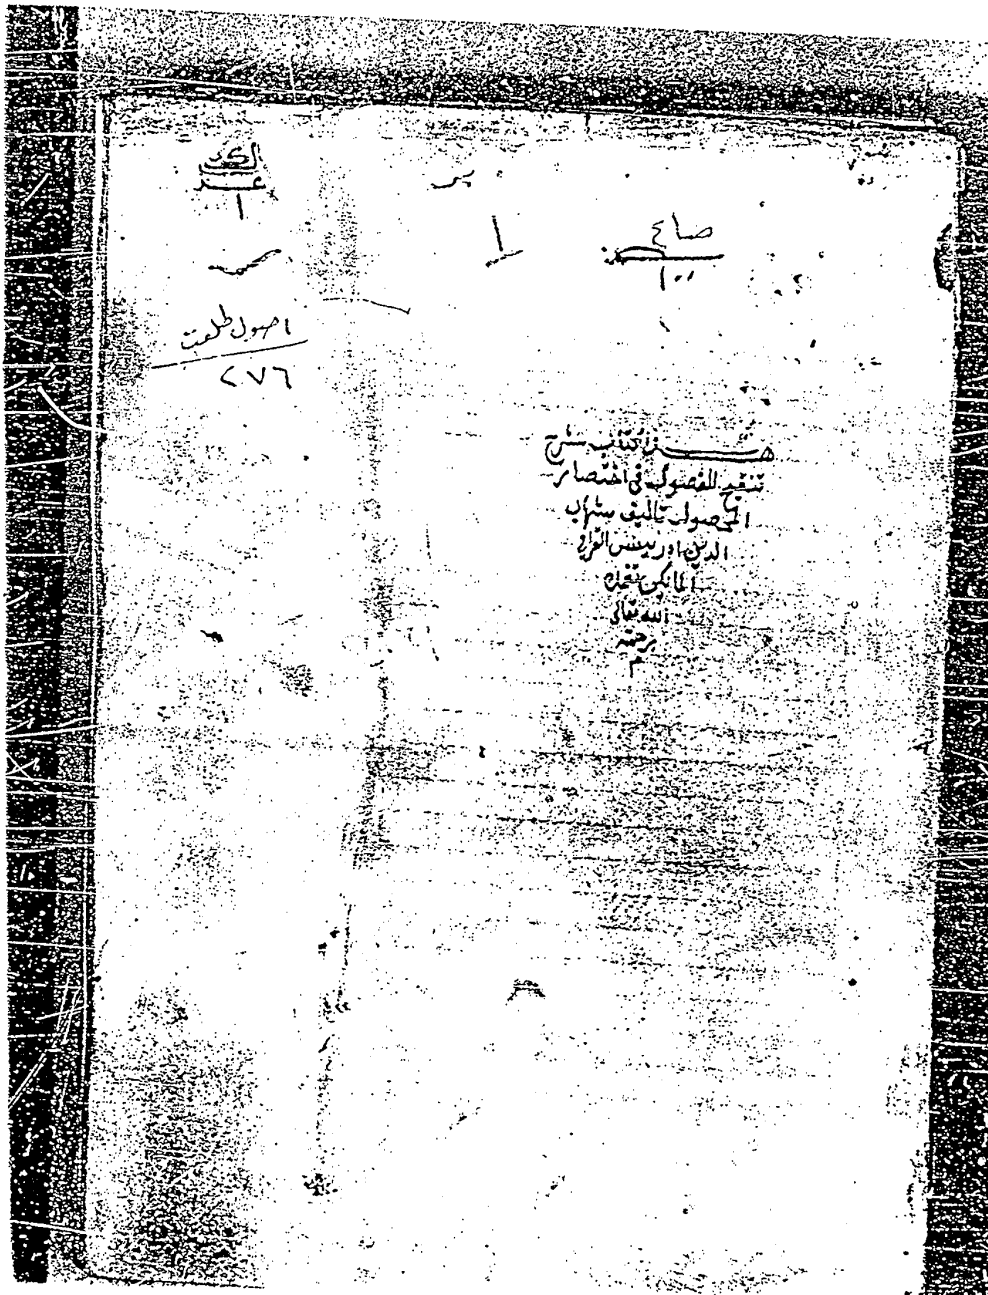 عدد
١
ضاع
١٠٠
ا
اصول طلعت
٢٧٦
هذا كتاب شرح
تنقيح الفصول في اختصار
المحصول تاليف شهاب
الدين ادريس القرافي
المالكي تغمده
الله تعالى
برحمته
م